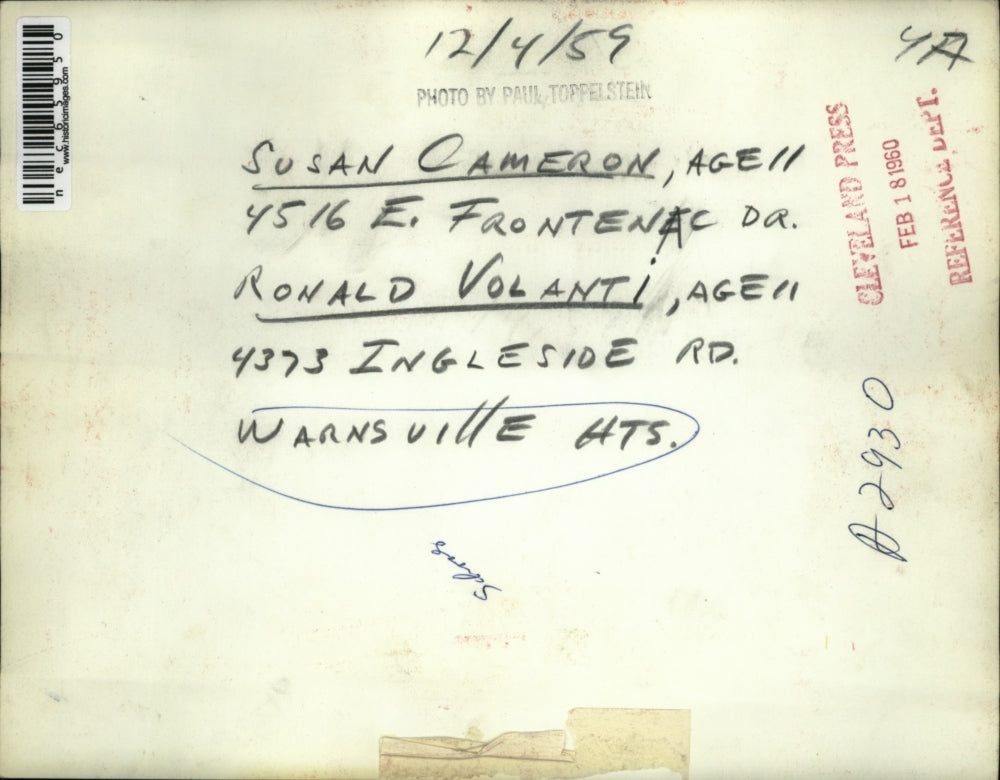 12/4/59
4A
PHOTO BY PAUL TOPPELSTEIN
SUSAN CAMERON, AGE 11
4516 E. FRONTENAC DR.
RONALD VOLANTI, AGE 11
4373 INGLESIDE RD.
WARNSVILLE HTS.
CLEVELAND PRESS
FEB 18 1960
REFERENCE DEPT.
A-2930
nec65950
www.historicimages.com